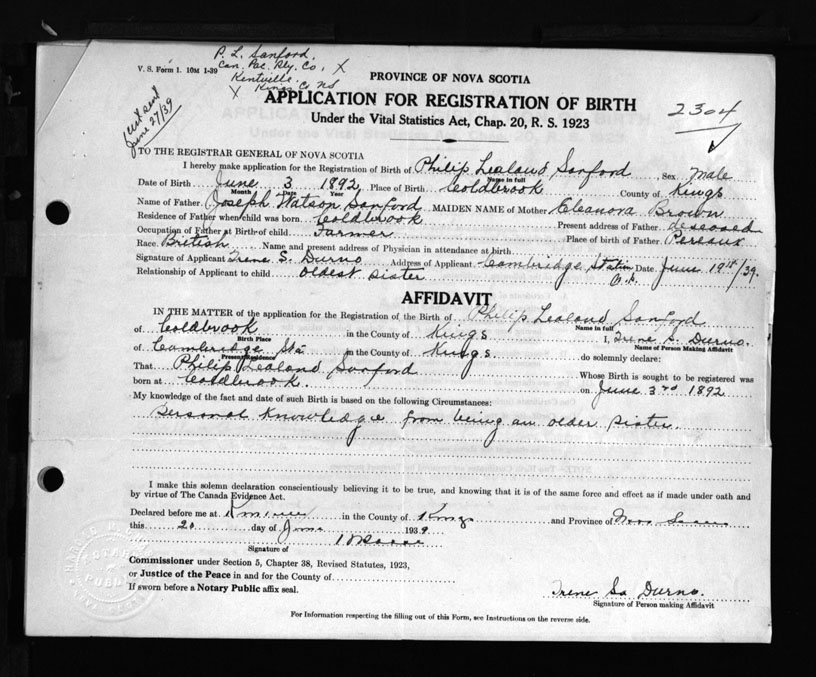 P. L. Sanford,
V. S. Form 1. 10M 1-39 Can. Pac. Rly. Co., X
Kentville
X Kings Co NS
sent
June 27/39
PROVINCE OF NOVA SCOTIA
APPLICATION FOR REGISTRATION OF BIRTH
2304
Under the Vital Statistics Act, Chap. 20, R. S. 1923
TO THE REGISTRAR GENERAL OF NOVA SCOTIA
I hereby make application for the Registration of Birth of Philip Lealand Sanford Sex Male
Name in full
Date of Birth June 3 1892 Place of Birth Coldbrook County of Kings
Month Date Year
Name of Father Joseph Watson Sanford MAIDEN NAME of Mother Eleanora Brown
Residence of Father when child was born Coldbrook Present address of Father deseased
Occupation of Father at Birth of child Farmer Place of birth of Father Pereaux
Race British Name and present address of Physician in attendance at birth
Signature of Applicant Irene S. Durno Address of Applicant Cambridge Station Date June 19th/39.
Relationship of Applicant to child oldest sister
AFFIDAVIT
IN THE MATTER of the application for the Registration of the Birth of Philip Lealand Sanford
Name in full
of Coldbrook in the County of Kings I, Irene S. Durno.
Birth Place Name of Person Making Affidavit
of Cambridge Sta in the County of Kings do solemnly declare:
Present Residence
That Philip Lealand Sanford Whose Birth is sought to be registered was
born at Coldbrook. on June 3rd 1892
My knowledge of the fact and date of such Birth is based on the following Circumstances:
Personal Knowledge from being an older sister.
I make this solemn declaration conscientiously believing it to be true, and knowing that it is of the same force and effect as if made under oath and
by virtue of The Canada Evidence Act.
Declared before me at in the County of Kings and Province of Nova Scotia
this 20 day of June 1939
Signature of
Commissioner under Section 5, Chapter 38, Revised Statutes, 1923,
or Justice of the Peace in and for the County of
If sworn before a Notary Public affix seal.
Irene S. Durno.
Signature of Person making Affidavit
For Information respecting the filling out of this Form, see Instructions on the reverse side.